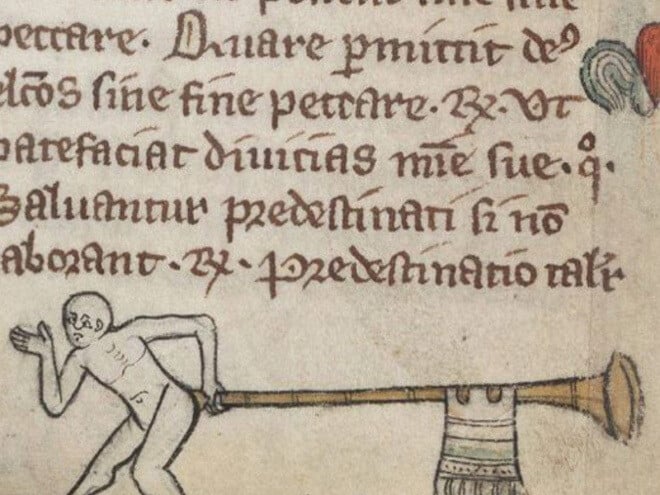 peccare. Quare ꝑmittit deꝰ
elcōs sine fine peccare. ℞. Ut
patefaciat diuicias mīe sue. q̊.
Saluantur predestinati si nō
laborant. ℞. Predestinatio